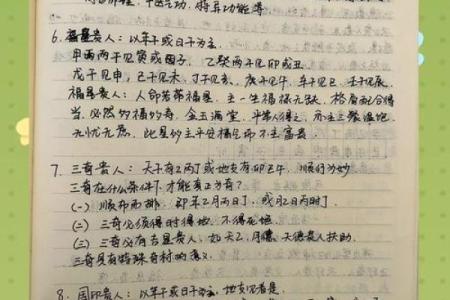 6. 福星贵人：以年干或日干为主，
甲丙两干见寅或因子，乙癸两干见卯或丑
戊干见申，己干见未，丁干见亥，庚干见午，辛干见巳，壬干见辰，
福星贵人：人命若带福星，主一生福禄无缺，格局配合得
当，必然多福多寿，金玉满堂，平常人得之，亦主三餐温饱
无忧无虑，此星妙主平安福气而不主富贵。
7. 三奇贵人：天干有乙丙丁或地支有卯巳午，顺行为妙
三奇在什么条件下，才能真正为奇？
(一) 顺布而排，即年乙月丙日丁，或月乙日丙时丁
(二) 三奇必须得时得地，不得死绝
(三) 三奇必有吉星贵人，如天乙、月德、天德贵人扶助，
三奇具有特殊奇材的意义。
8. 国印贵人：以年干或日干为主，地支见者是